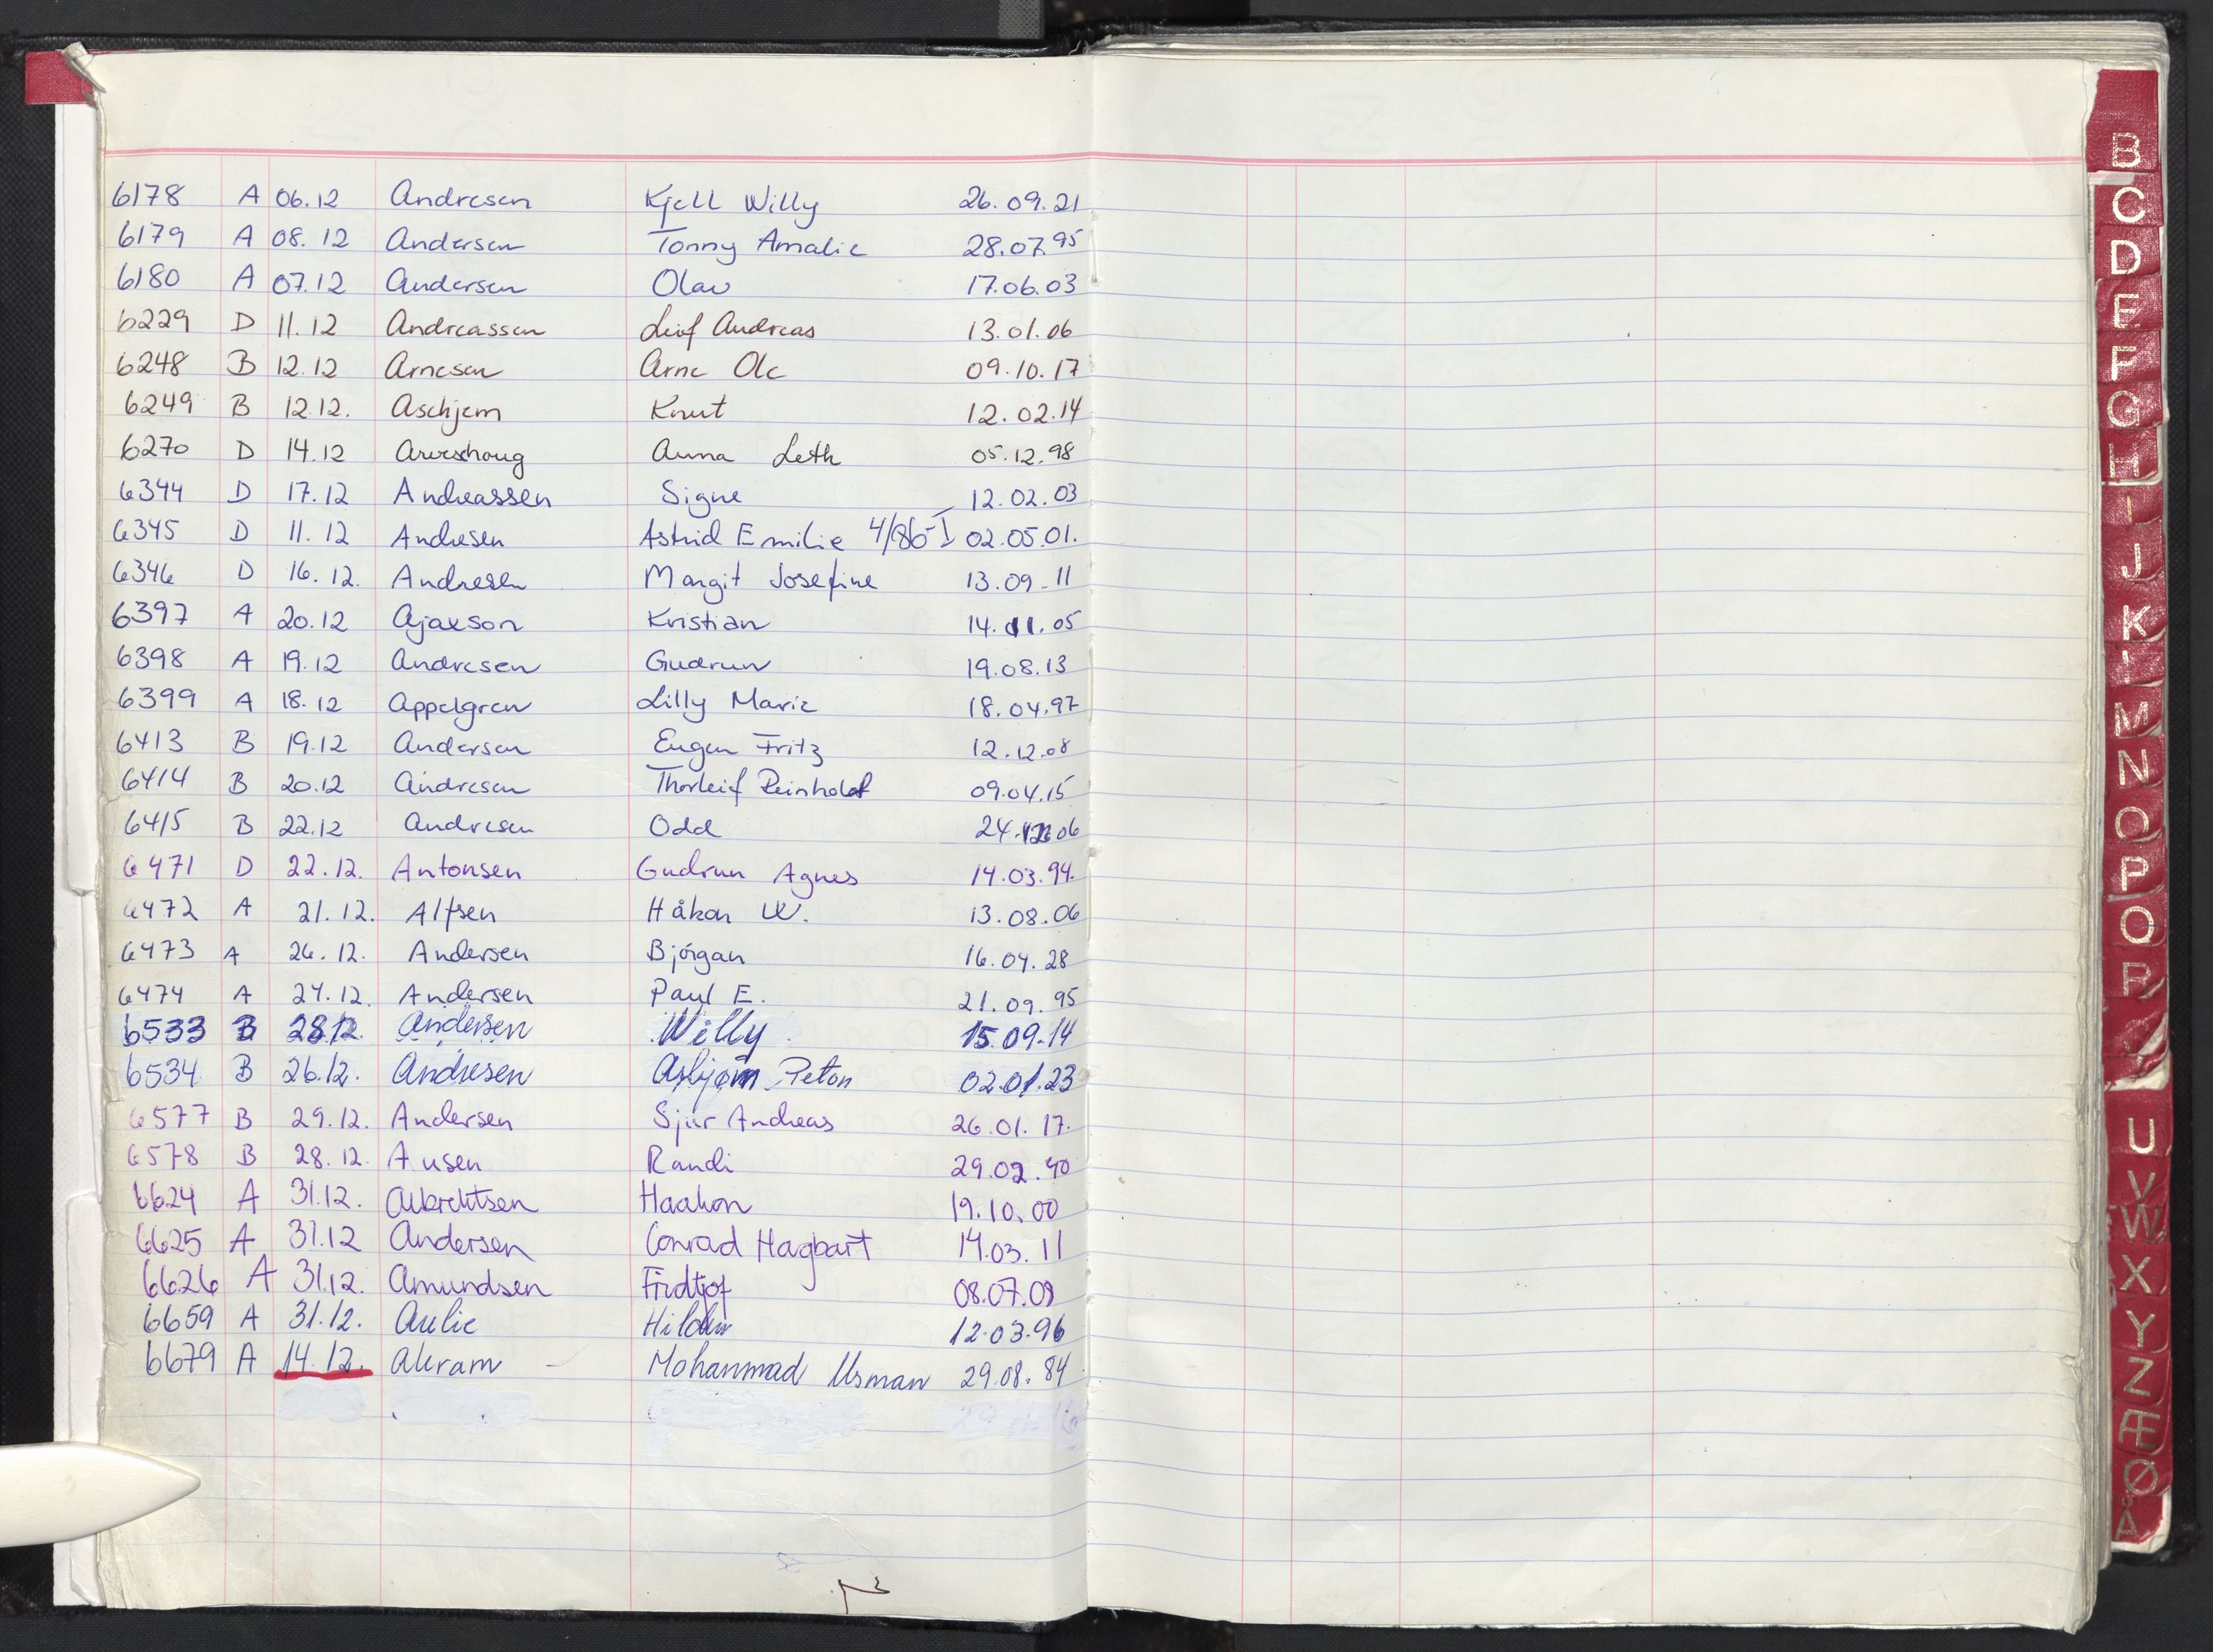 6178 A 06.12 Andresen Kjell Willy 26.09.21
6179 A 08.12 Andersen Tonny Amalie 28.07.95
6180 A 07.12 Andersen Olav 17.06.03
6229 D 11.12 Andreassen Leif Andreas 13.01.06
6248 B 12.12 Arnesen Arne Ole 09.10.17
6249 B 12.12. Aschjem Knut 12.02.14
6270 D 14.12 Anna Leth 05.12.98
6344 D 17.12 Andreassen Signe 12.02.03
6345 D 11.12 Andresen Astrid Emilie 4/86-I 02.05.01.
6346 D 16.12. Andresen Margit Josefine 13.09-11
6397 A 20.12 Ajaxson Kristian 14.11.05
6398 A 19.12 Andresen Gudrun 19.08.13
6399 A 18.12 Appelgren Lilly Marie 18.04.97
6413 B 19.12 Andersen Eugen Fritz 12.12.08
6414 B 20.12 Andresen Thorleif Reinholdt 09.04.15
6415 B 22.12 Andresen Odd
6471 D 22.12. Antonsen Gudrun Agnes 14.03.94.
6472 A 21.12. Alfsen Håkon W. 13.08.06
6473 A 26.12. Andersen Bjørgan 16.04.28
6474 A 24.12. Andersen Paul E. 21.09.95
6533 B 28.12. Andersen Willy 15.09-14
6534 B 26.12. Andresen Asbjørn 02.01.23
6577 B 29.12. Andersen Sjur Andreas 26.01.17.
6578 B 28.12. Ausen Randi 29.02.40
6624 A 31.12. Albrechtsen Haakon 19.10.00
6625 A 31.12 Andersen Conrad Hagbart 14.03.11
6626 A 31.12. Amundsen Fridtjof 08.07.09
6659 A 31.12. Aulie 12.03.96
6679 A 14.12. Akram Mohammad Usman 29.08.84
B
C
D
E
F
G
H
I
J
K
M
N
O
P
Q
R
U
V
W
X
Y
Z
Æ
Ø
Å